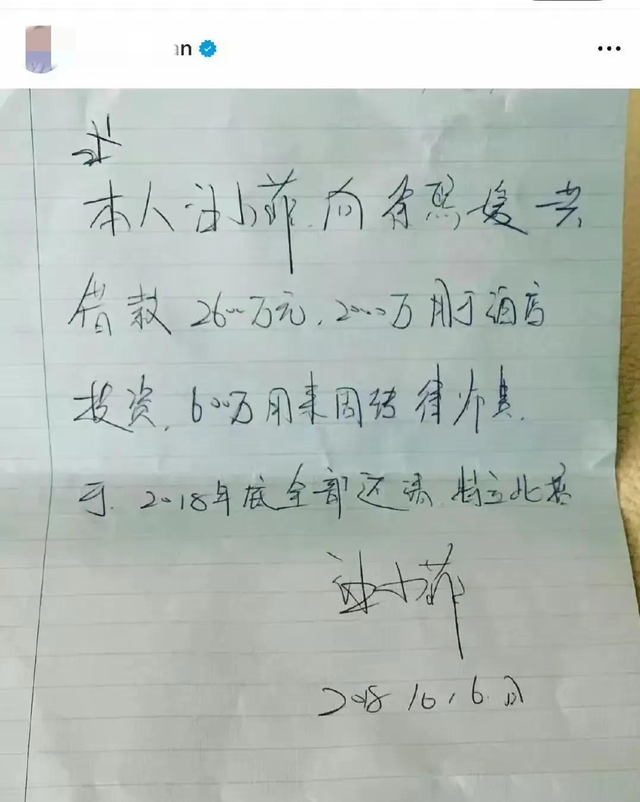 an
本人汪小菲.向徐熙媛共
借款2600万元,2000万用于酒店
投资,600万用来周转律师费.
于.2018年底全部还清.特立此据
汪小菲
2018.10.6.日